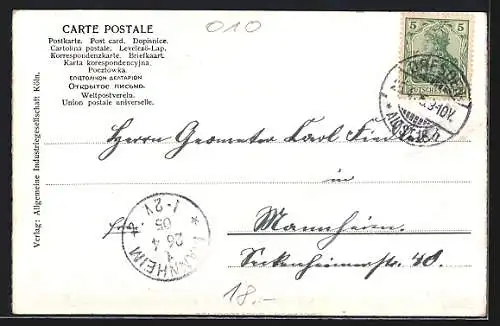 010
CARTE POSTALE
Postkarte. Post card. Dopisnice.
Cartolina postale. Levelező-Lap.
Korrespondenzkarte. Briefkaart.
Karta korespondencyjna.
Pocztówka.
ΕΠΙΣΤΟΛΙΚΟΝ ΔΕΛΤΑΡΙΟΝ
Открытое письмо.
Weltpostverein.
Union postale universelle.
5 5
DRESDEN
ALTST. 16
Verlag: Allgemeine Industriegesellschaft Köln.
Herrn Geometer Karl
in
Mannheim.
Seckenheimerstr. 40.
MANNHEIM 1
26 4
05
1-2V
18.-